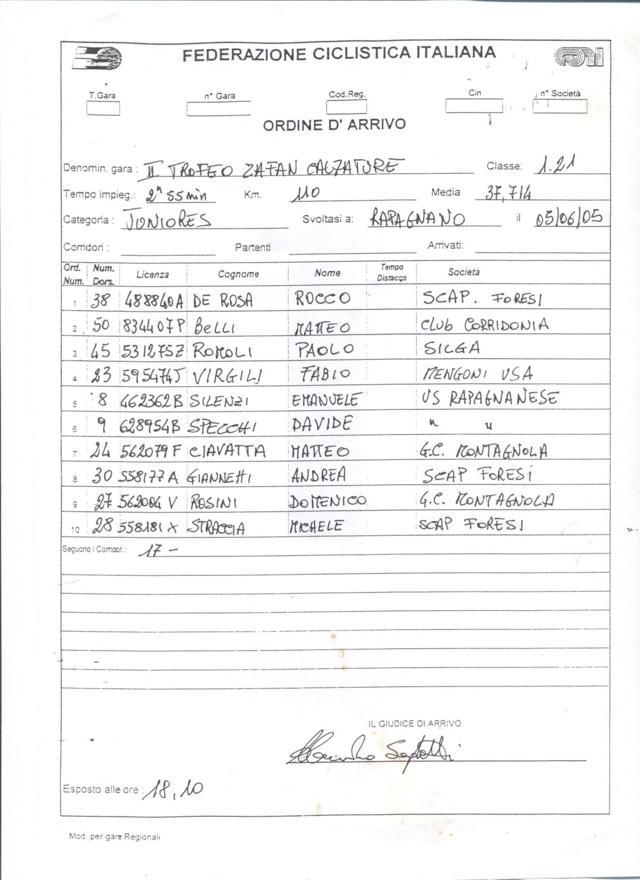 FEDERAZIONE CICLISTICA ITALIANA
T.Gara n° Gara Cod.Reg. Cin n° Società
ORDINE D' ARRIVO
Denomin. gara : II TROFEO ZAFAN CALZATURE Classe: 1.21
Tempo impieg.: 2h 55 min Km. 110 Media 37,714
Categoria : JUNIORES Svoltasi a: RAPAGNANO il 05/06/05
Corridori : Partenti Arrivati:
Ord. Num. Num. Dors. Licenza Cognome Nome Tempo Distacco Società
1 38 488840A DE ROSA ROCCO SCAP. FORESI
2 50 834407P BELLI MATTEO CLUB CORRIDONIA
3 45 531275Z ROMOLI PAOLO SILGA
4 23 595474J VIRGILI FABIO MENGONI USA
5 8 462362B SILENZI EMANUELE US RAPAGNANESE
6 9 628954B SPECCHI DAVIDE " "
7 24 562079F CIAVATTA MATTEO G.C. MONTAGNOLA
8 30 558177A GIANNETTI ANDREA SCAP FORESI
9 27 562004 V ROSINI DOMENICO G.C. MONTAGNOLA
10 28 558181X STRACCIA MICHELE SCAP FORESI
Seguono i Corridori : 17 -
IL GIUDICE DI ARRIVO
Esposto alle ore : 18,10
Mod. per gare Regionali